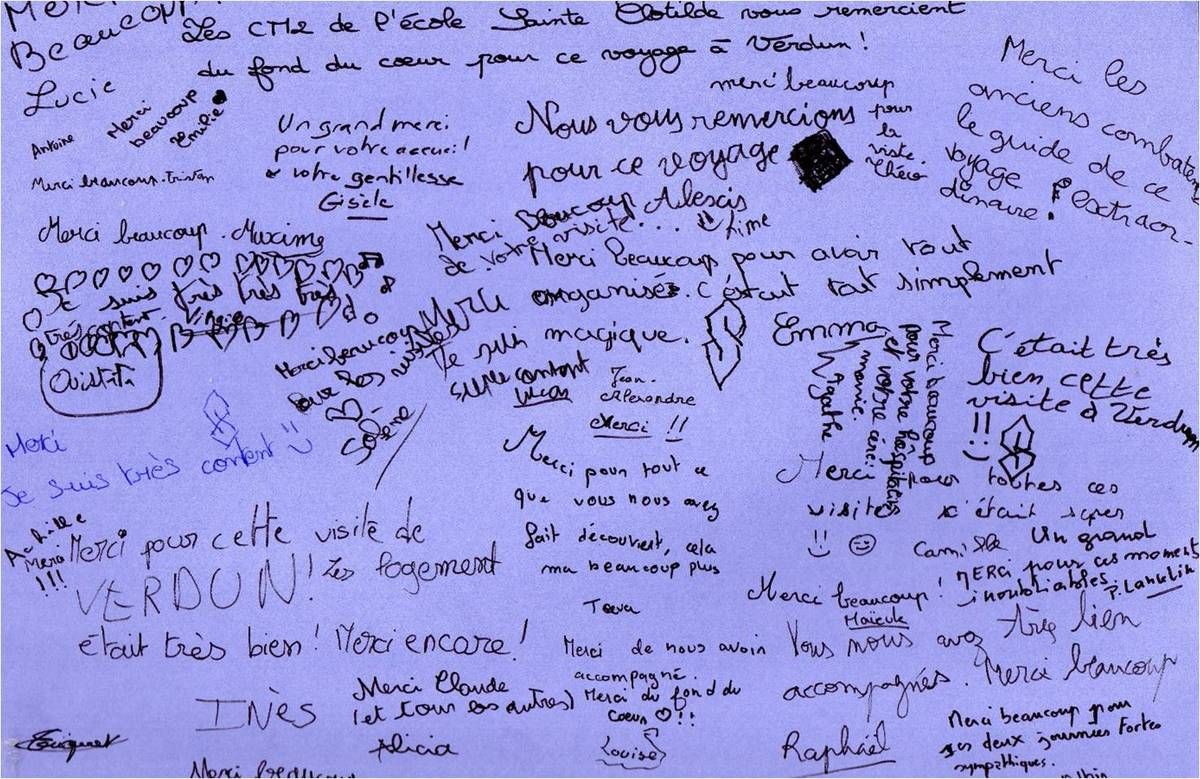 Merci
Beaucoup
Lucie
Les CM2 de l'école Sainte Clotilde vous remercient
du fond du cœur pour ce voyage à Verdun !
Antoine
Merci
beaucoup
Emilie
Merci beaucoup. Tristan
Un grand merci
pour votre accueil
& votre gentillesse
Gisèle
merci beaucoup
pour
la
visite.
Théo
Nous vous remercions
pour ce voyage
Alexis
Merci les
anciens combatents
le guide de ce
voyage extraor-
dinaire.
Merci beaucoup. Maxime
Je suis très très très
très content.
Ouistiti
Merci Beaucoup
de votre visite...
Time
Merci beaucoup pour avoir tout
organisé. C'était tout simplement
magique.
Emma
Merci beaucoup
pour les visites
Solène
Merci
Je suis
super content
Lucas
Jean-
Alexandre
Merci !!
Merci beaucoup
pour votre hospitalité
et votre céré-
monie.
Agathe
C'était très
bien cette
visite à Verdun
!!
Merci
Je suis très content
Achille
Merci
!!!
Merci pour tout ce
que vous nous avez
fait découvert, cela
ma beaucoup plus
Merci pour toutes ces
visites c'était super
Camille
Merci pour cette visite de
VERDUN ! Les logement
était très bien ! Merci encore !
INÈS
Un grand
MERCi pour ces moment
inoubliables.
Merci beaucoup !
Merci de nous avoir
accompagné.
Merci du fond du
coeur !!
Louise
Vous nous avez très bien
accompagnés. Merci beaucoup
Raphaël
Merci Claude
(et tous les autres)
Alicia
Merci beaucoup pour
ses deux journées fortes
sympathiques.
Merci beaucoup